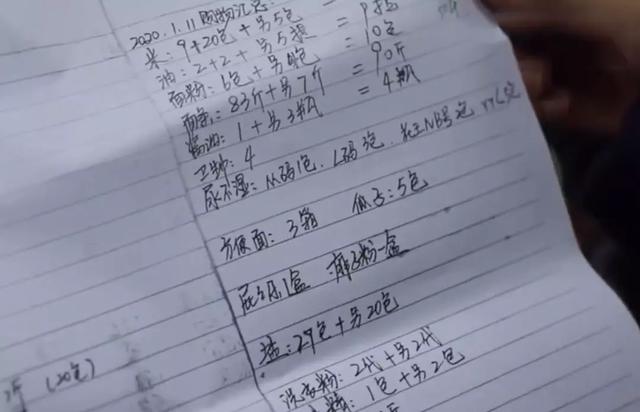 2020.1.11购物汇总
米:9+20包+另5包
油:2+2+另5提 = 9提
面粉:6包+另4包 = 10包
面条:83斤+另7斤 = 90斤
酱油:1+另3瓶 = 4瓶
卫生巾:4
尿不湿:M码1包, L码3包,
方便面:3箱 瓜子:5包
1盒 一盒
盐:29包+另20包
洗衣粉:2代+另2代
1包+另2包
(20包)